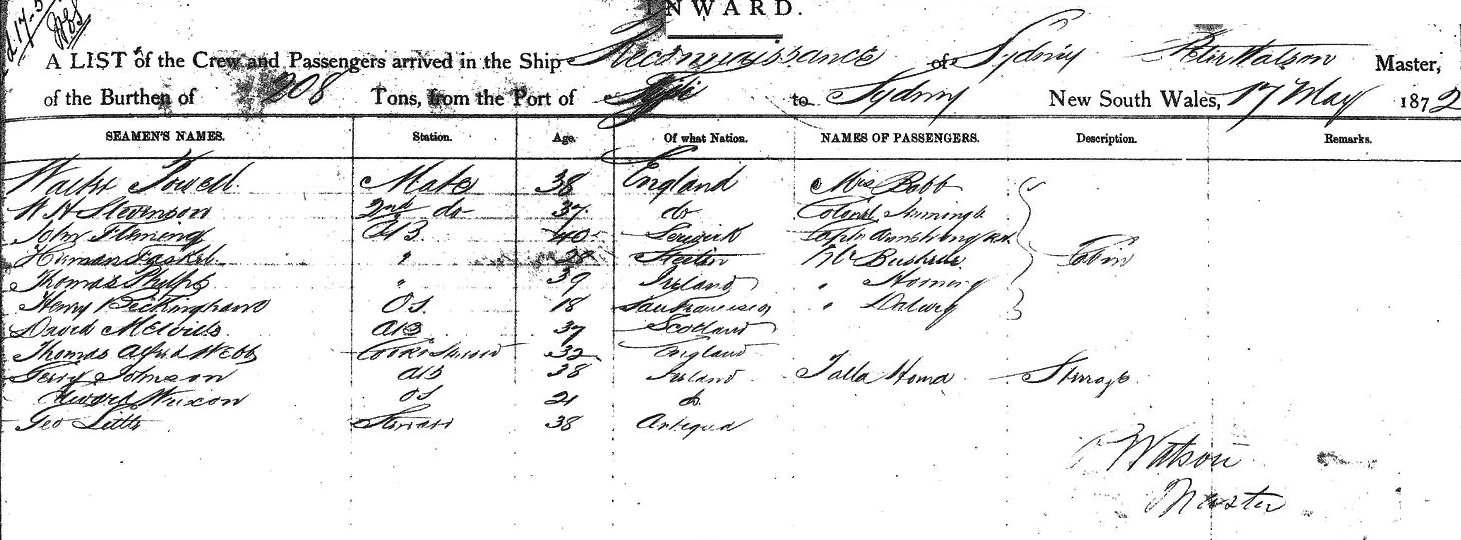 INWARD.
A LIST of the Crew and Passengers arrived in the Ship Reconnaissance of Sydney Peter Watson Master,
of the Burthen of 208 Tons, from the Port of Fiji to Sydney New South Wales, 17 May 1872
SEAMEN'S NAMES. Station. Age. Of what Nation. NAMES OF PASSENGERS. Description. Remarks.
Walter Powell Mate 38 England Mrs Babb
W H Stevenson 2nd do 37 do Colonel
John Fleming AB 40 Lerwick Capt Armstrong RN
Herman " 28 Stettin Mr Cabin
Thomas Phelps " 39 Ireland "
Henry Beckingham OS 18 San Francisco "
David Melville AB 37 Scotland
Thomas Alfred Webb Cook & Steward 32 England
Johnson AB 38 Ireland Talla Homa Steerage
Edward OS 21 do
Geo Little Steward 38 Antigua
P Watson
Master